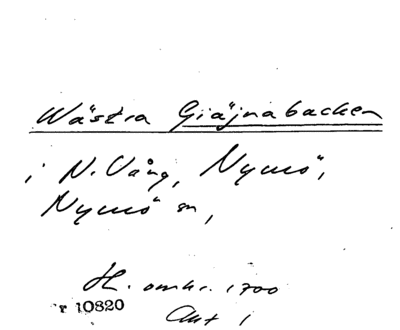 Wästra Giäjnabacken
i N. Vång, Nymö,
Nymö sn,
H. omkr. 1700
r 10820
Akt 1